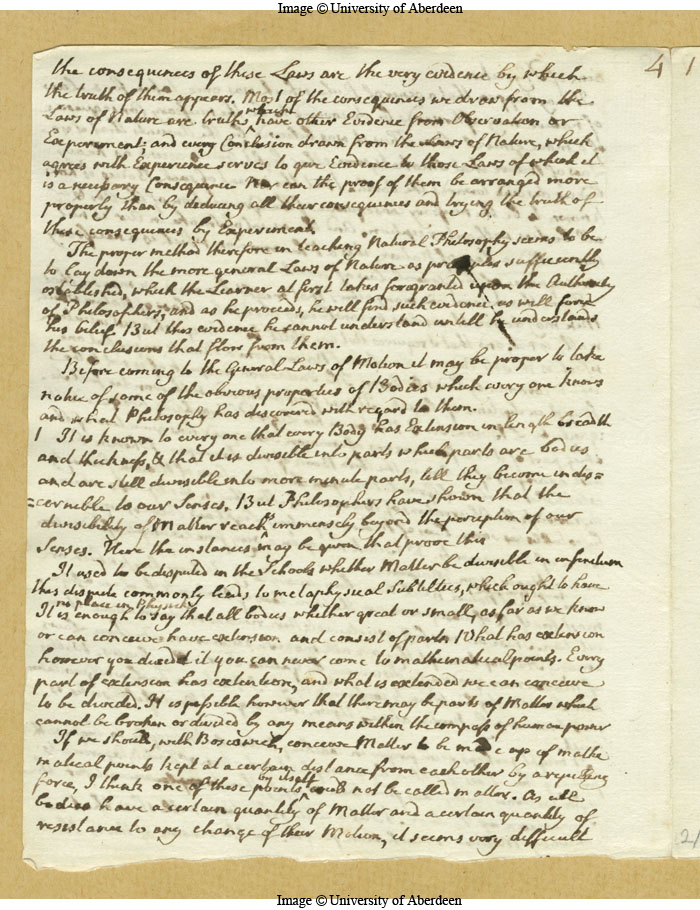 Image © University of Aberdeen
4 1
the consequences of these Laws are the very evidence by which
the truth of them appears. Most of the consequences we draw from the
which
Laws of Nature are truths have other Evidence from Observation or
Experiment; and every Conclusion drawn from the Laws of Nature, which
agrees with Experience serves to give Evidence to those Laws of which it
is a necessary Consequence Nor can the proof of them be arranged more
properly than by deducing all their consequences and trying the truth of
these consequences by Experiment.
The proper method therefore in teaching Natural Philosophy seems to be
to lay down the more general Laws of Nature as sufficiently
established, which the Learner at first takes for granted upon the Authority
of Philosophers, and as he proceeds, he will find such evidence as will force
his belief. But this evidence he cannot understand untill he understands
the conclusions that flow from them.
Before coming to the General Laws of Motion it may be proper to take
notice of some of the obvious properties of Bodies which every one knows
and what Philosophy has discovered with regard to them.
1 It is known to every one that every Body has Extension in length breadth
and thickness, & that it is divisible into parts which parts are bodies
and are still divisible into more minute parts, till they become indis=
=cernible to our Senses, But Philosophers have shown that the
divisibility of Matter reach immensely beyond the perception of our
Senses. Here the instances may be given that prove this
It used to be disputed in the Schools whether Matter be divisible in infinitum
this dispute commonly leads to metaphysical Subtilties, which ought to have
no place in Physicks
It is enough to say that all bodies whether great or small, as far as we know
or can conceive have extension and consist of parts What has extension
however you divide it you can never come to mathematical points. Every
part of extension has extention, and what is extended we can conceive
to be divided. It is possible however that there may be parts of Matter which
cannot be broken or divided by any means within the compass of human power
If we should, with Boscovich, conceive Matter to be made up of mathe
matical points kept at a certain distance from each other by a repelling
by itself
force, I think one of these points could not be called matter. As all
bodies have a certain quantity of Matter and a certain quantity of
resistance to any change of their Motion, it seems very difficult
2/
Image © University of Aberdeen